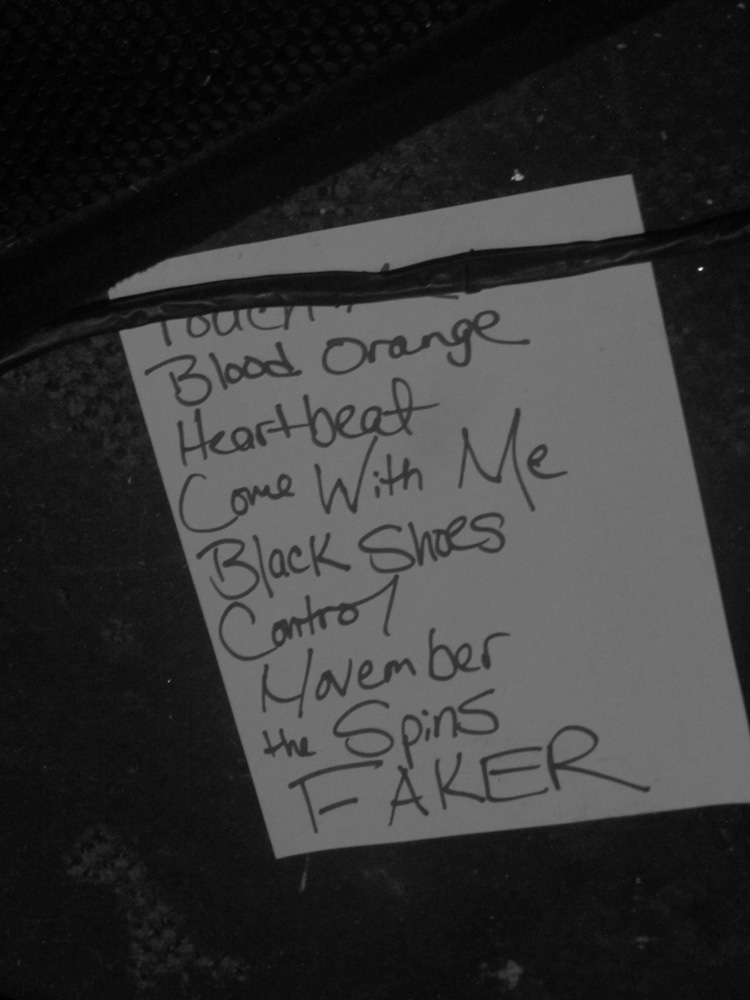 Touch
Blood Orange
Heartbeat
Come With Me
Black Shoes
Control
November
the Spins
FAKER